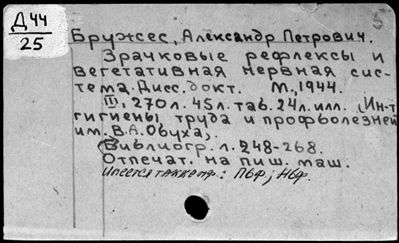 Д 44
25
5
Бружес, Александр Петрович.
Зрачковые рефлексы и
вегетативная нервная сис-
тема. Дисс. докт. М., 1944.
III, 270 л. 45 л. таб. 24 л. илл. (Ин-т
гигиены труда и профболезней
им. В.А. Обуха).
(Библиогр. л. 248-268.
Отпечат. на пиш. маш.
Имеется также пф.: Пбф; Нбф.